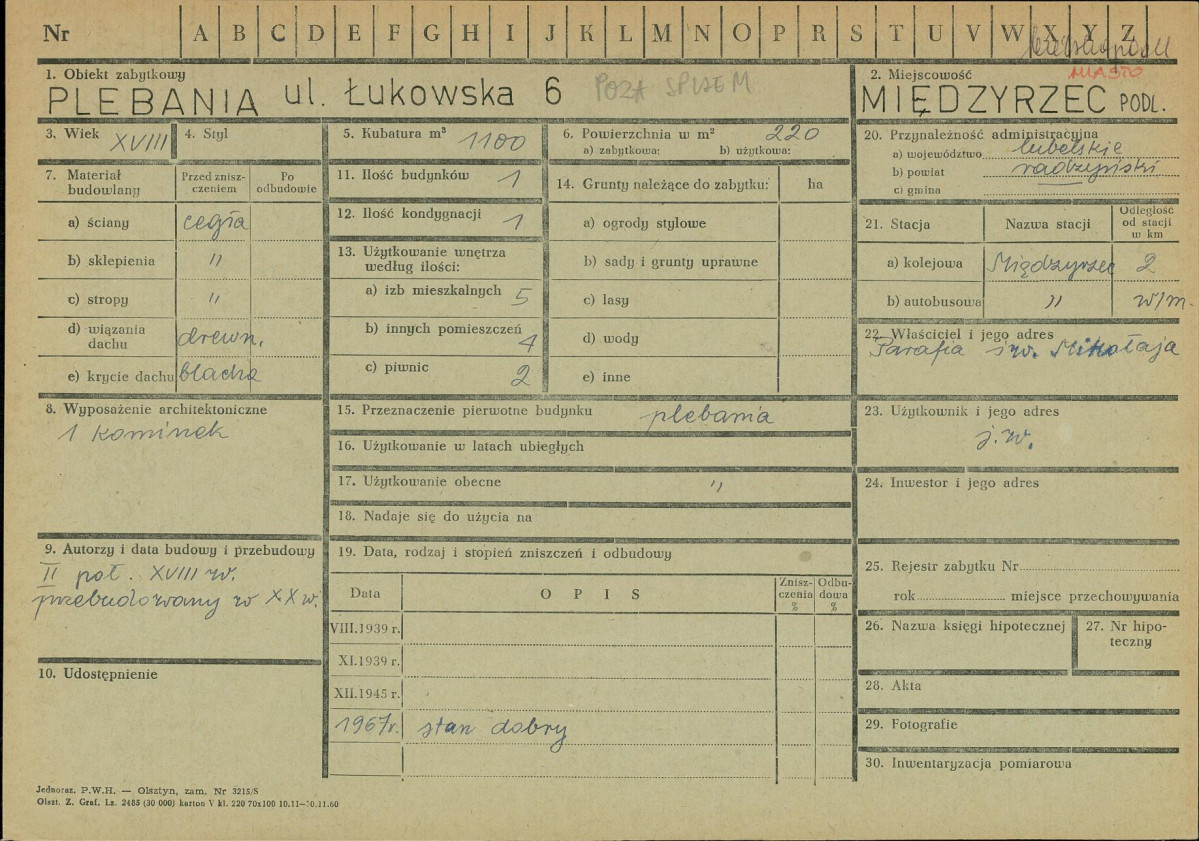 Nr A B C D E F G H I J K L M N O P R S T U V W X Y Z
1. Obiekt zabytkowy
PLEBANIA ul. Łukowska 6 POZA SPISEM
2. Miejscowość
MIASTO
MIĘDZYRZEC PODL.
3. Wiek XVIII
4. Styl
5. Kubatura m³ 1100
6. Powierzchnia w m² 220
a) zabytkowa: b) użytkowa:
7. Materiał budowlany
Przed zniszczeniem
Po odbudowie
a) ściany cegła
b) sklepienia "
c) stropy "
d) wiązania dachu drewn.
e) krycie dachu blacha
8. Wyposażenie architektoniczne
1 kominek
9. Autorzy i data budowy i przebudowy
II poł. XVIII w.
przebudowany w XX w.
10. Udostępnienie
11. Ilość budynków 1
12. Ilość kondygnacji 1
13. Użytkowanie wnętrza
według ilości:
a) izb mieszkalnych 5
b) innych pomieszczeń 4
c) piwnic 2
14. Grunty należące do zabytku: ha
a) ogrody stylowe
b) sady i grunty uprawne
c) lasy
d) wody
e) inne
15. Przeznaczenie pierwotne budynku plebania
16. Użytkowanie w latach ubiegłych
17. Użytkowanie obecne "
18. Nadaje się do użycia na
19. Data, rodzaj i stopień zniszczeń i odbudowy
Data O P I S Zniszczenia % Odbudowa %
VIII.1939 r.
XI.1939 r.
XII.1945 r.
1967r. stan dobry
20. Przynależność administracyjna
a) województwo lubelskie
b) powiat radzyński
c) gmina
21. Stacja Nazwa stacji Odległość od stacji w km
a) kolejowa Międzyrzec 2
b) autobusowa " w/m.
22. Właściciel i jego adres
Parafia św. Mikołaja
23. Użytkownik i jego adres
j.w.
24. Inwestor i jego adres
25. Rejestr zabytku Nr
rok miejsce przechowywania
26. Nazwa księgi hipotecznej
27. Nr hipoteczny
28. Akta
29. Fotografie
30. Inwentaryzacja pomiarowa
Jednoraz. P.W.H. — Olsztyn, zam. Nr 3215/S
Olszt. Z. Graf. Lz. 2485 (30 000) karton V kl. 220 70x100 10.11—30.11.60